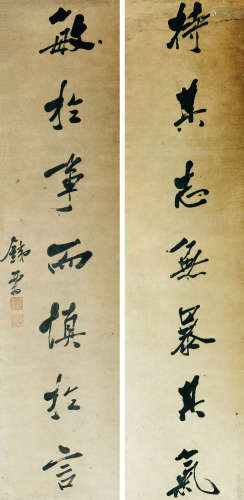 持其志無暴其氣
敏於事而慎於言